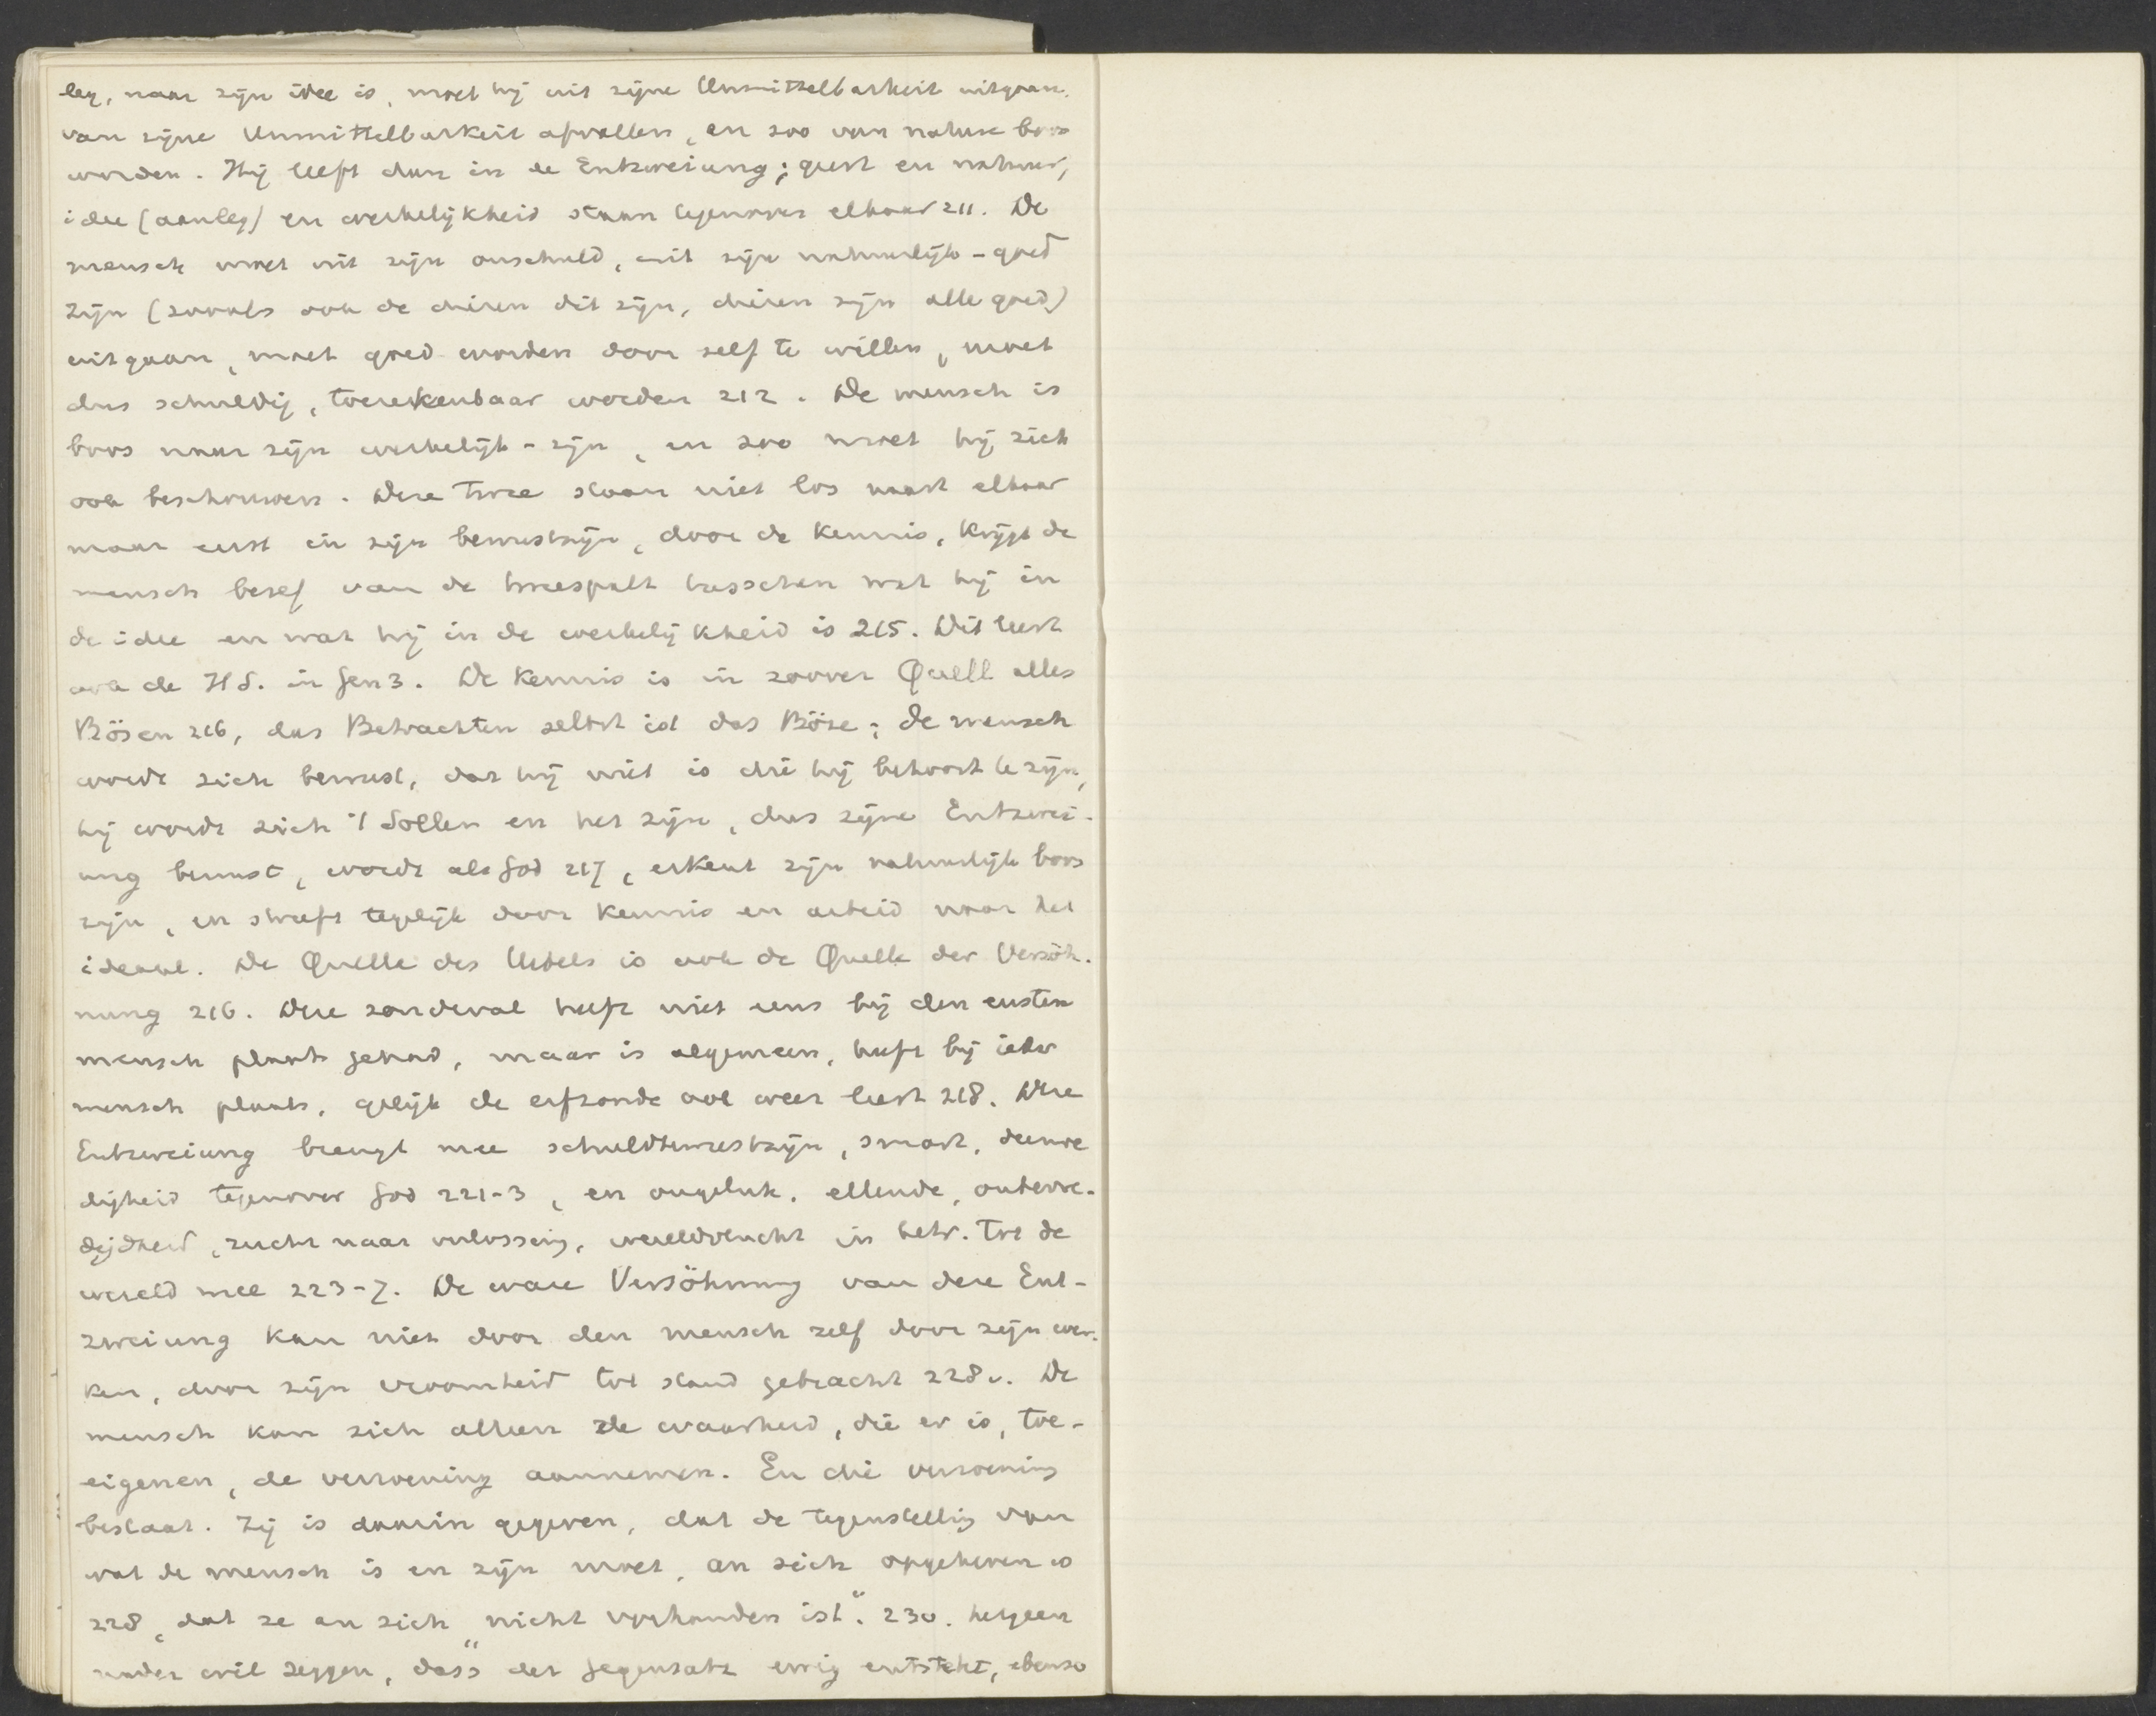 leg, naar zijn idee is, moet hij uit zijne Unmittelbarkeit uitgaan,
van zijne Unmittelbarkeit afvallen, en zoo van nature boos
worden. Hij leeft dan in de Entzweiung; geest en natuur,
idee (aanleg) en werkelijkheid staan tegenover elkaar 211. De
mensch moet uit zijn onschuld, uit zijn natuurlijk-goed
zijn (zooals ook de dieren dit zijn, dieren zijn alle goed)
uitgaan, moet goed worden door zelf te willen, moet
dus schuldig, toerekenbaar worden 212. De mensch is
boos naar zijn werkelijk-zijn, en zoo moet hij zich
ook beschouwen. Deze twee staan niet los naast elkaar
maar eerst in zijn bewustzijn, door de kennis, krijgt de
mensch besef van de tweespalt tusschen wat hij in
de idee en wat hij in de werkelijkheid is 215. Dit leert
ook de H S. in Gen 3. De kennis is in zoover Quell alles
Bösen 216, das Betrachten selbst ist das Böse; de mensch
wordt zich bewust, dat hij niet is die hij behoort te zijn,
hij wordt zich 't Sollen en het zijn, dus zijne Entzwei-
ung bewust, wordt als God 217, erkent zijn natuurlijk boos
zijn, en streeft tegelijk door kennis en arbeid naar het
ideaal. De Quelle des Uebels is ook de Quelle der Versöh-
nung 216. Deze zondeval heeft niet eens bij den eersten
mensch plaats gehad, maar is algemeen, heeft bij ieder
mensch plaats, gelijk de erfzonde ook weer leert 218. Deze
Entzweiung brengt mee schuldbewustzijn, smart, deemoe
digheid tegenover God 221-3, en ongeluk, ellende, ontevre-
digheid, zucht naar verlossing, wereldvlucht in betr. tot de
wereld mee 223-7. De ware Versöhnung van deze Ent-
zweiung kan niet door den mensch zelf door zijn wer-
ken, door zijn vroomheid tot stand gebracht 228v. De
mensch kan zich alleen de waarheid, die er is, toe-
eigenen, de verzoening aannemen. En die verzoening
bestaat. Zij is daarin gegeven, dat de tegenstelling van
wat de mensch is en zijn moet, an sich opgeheven is
228, dat ze an sich "nicht vorhanden ist". 230. hetgeen
nader wil zeggen, "dass der Gegensatz ewig entsteht, ebenso